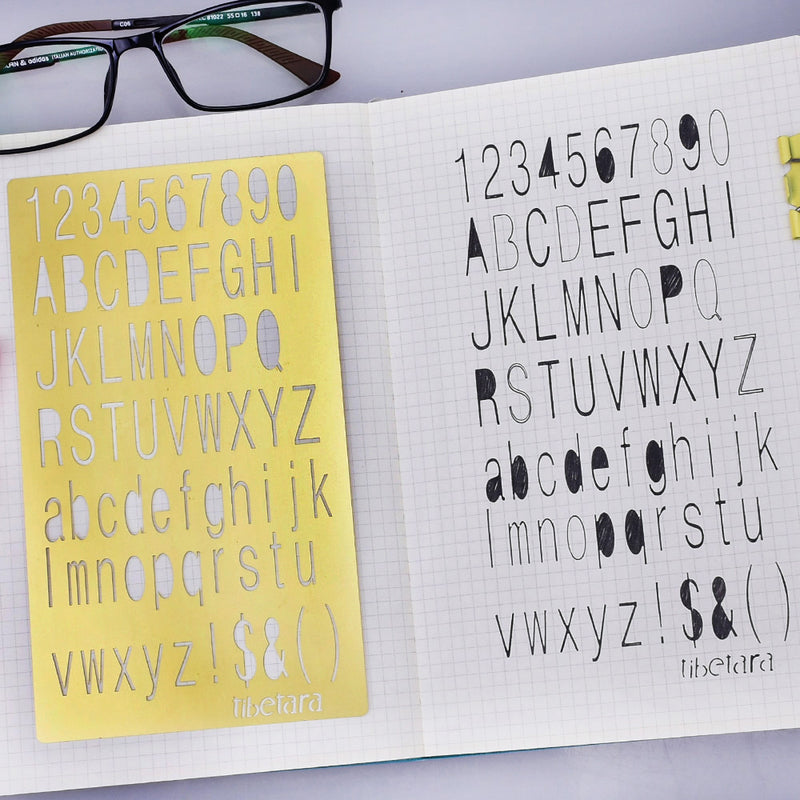 C06
81022 55□16 138
& adidas ITALIAN AUTHORIZA
1234567890
ABCDEFGHI
JKLMNOPQ
RSTUVWXYZ
abcdefghijk
lmnopqrstu
vwxyz!$&()
tibetara
1234567890
ABCDEFGHI
JKLMNOPQ
RSTUVWXYZ
abcdefghijk
lmnopqrstu
vwxyz!$&()
tibetara